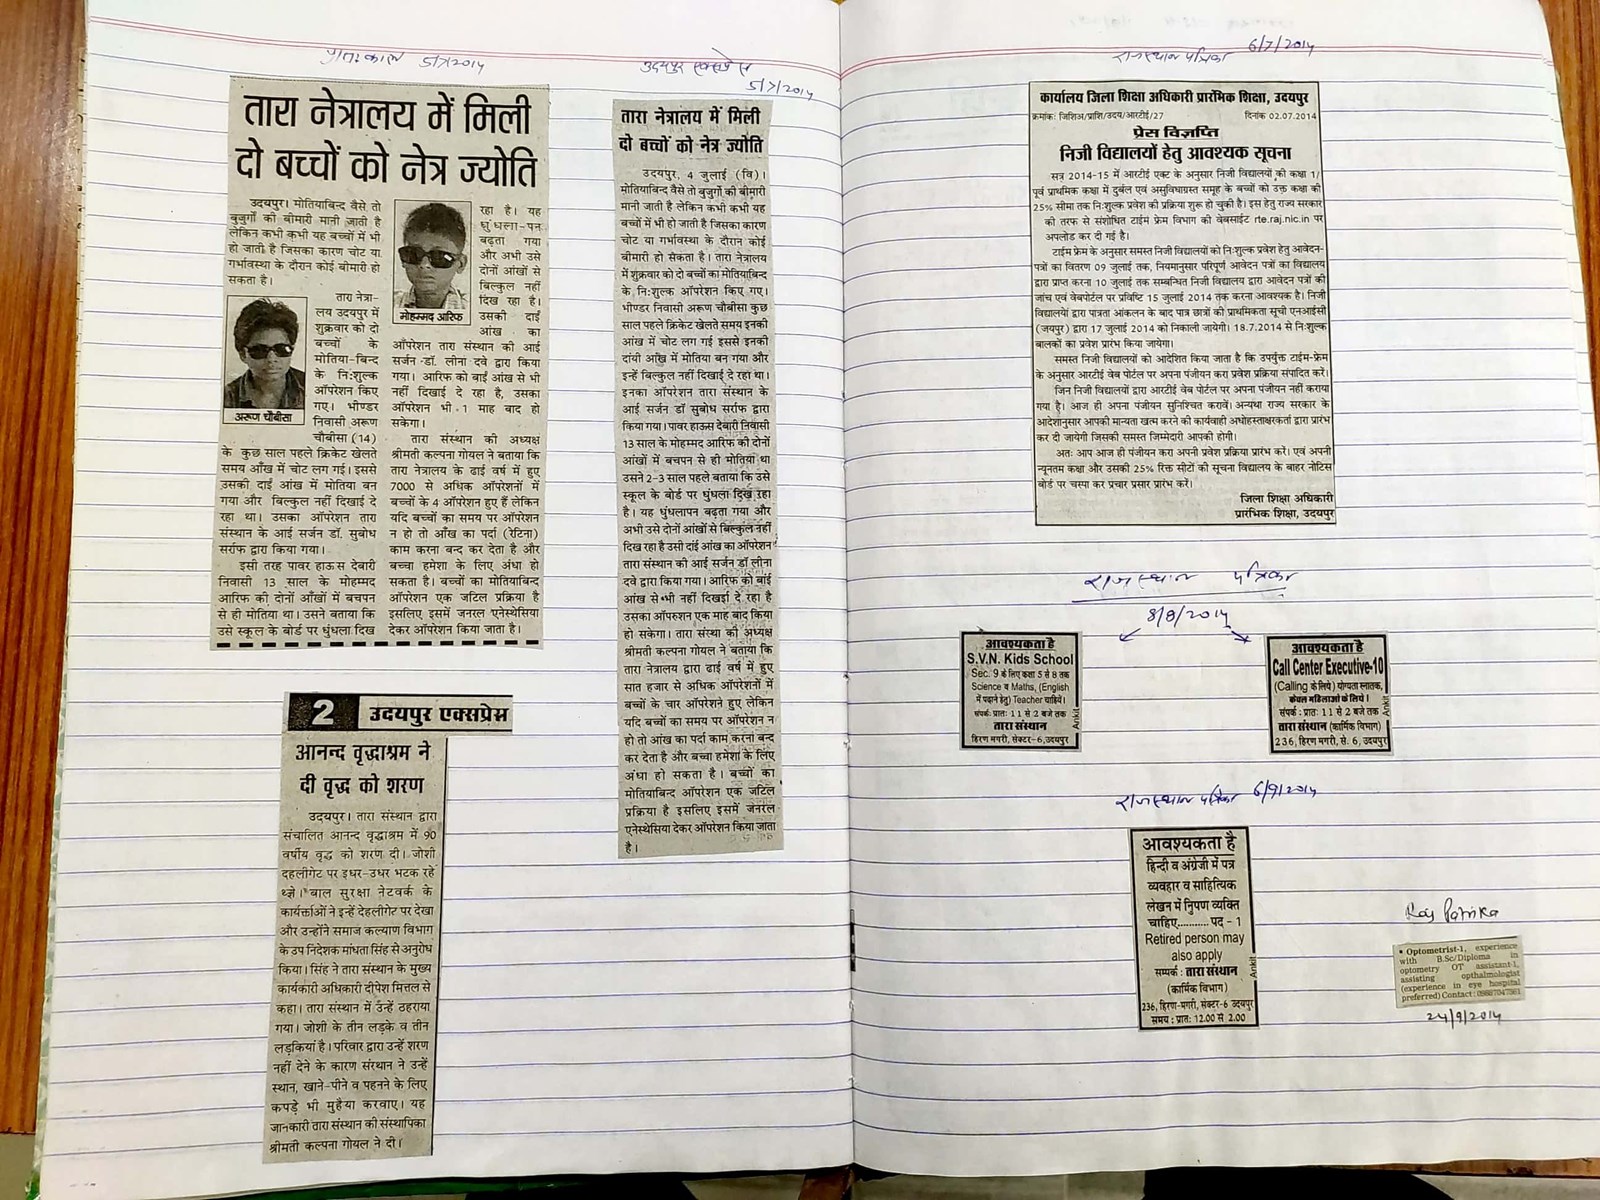 प्रातःकाल 5/7/2014
तारा नेत्रालय में मिली
दो बच्चों को नेत्र ज्योति
उदयपुर। मोतियाबिन्द वैसे तो
बुजुर्गों की बीमारी मानी जाती है
लेकिन कभी कभी यह बच्चों में भी
हो जाती है जिसका कारण चोट या
गर्भावस्था के दौरान कोई बीमारी हो
सकता है।
तारा नेत्रा-
लय उदयपुर में
शुक्रवार को दो
बच्चों के
मोतिया-बिन्द
के निःशुल्क
ऑपरेशन किए
गए। भीण्डर
निवासी अरूण
चौबीसा (14)
अरूण चौबीसा
के कुछ साल पहले क्रिकेट खेलते
समय आँख में चोट लग गई। इससे
उसकी दाई आंख में मोतिया बन
गया और बिल्कुल नहीं दिखाई दे
रहा था। उसका ऑपरेशन तारा
संस्थान के आई सर्जन डॉ. सुबोध
सर्राफ द्वारा किया गया।
इसी तरह पावर हाऊस देबारी
निवासी 13 साल के मोहम्मद
आरिफ की दोनों आँखों में बचपन
से ही मोतिया था। उसने बताया कि
उसे स्कूल के बोर्ड पर धुंधला दिख
मोहम्मद आरिफ
रहा है। यह
धुंधला-पन
बढ़ता गया
और अभी उसे
दोनों आंखों से
बिल्कुल नहीं
दिख रहा है।
उसकी दाई
आंख का
ऑपरेशन तारा संस्थान की आई
सर्जन डॉ. लीना दवे द्वारा किया
गया। आरिफ को बाईं आंख से भी
नहीं दिखाई दे रहा है, उसका
ऑपरेशन भी 1 माह बाद हो
सकेगा।
तारा संस्थान की अध्यक्ष
श्रीमती कल्पना गोयल ने बताया कि
तारा नेत्रालय के ढाई वर्ष में हुए
7000 से अधिक ऑपरेशनों में
बच्चों के 4 ऑपरेशन हुए हैं लेकिन
यदि बच्चों का समय पर ऑपरेशन
न हो तो आँख का पर्दा (रेटिना)
काम करना बन्द कर देता है और
बच्चा हमेशा के लिए अंधा हो
सकता है। बच्चों का मोतियाबिन्द
ऑपरेशन एक जटिल प्रक्रिया है
इसलिए इसमें जनरल एनेस्थेसिया
देकर ऑपरेशन किया जाता है।
2 उदयपुर एक्सप्रेस
आनन्द वृद्धाश्रम ने
दी वृद्ध को शरण
उदयपुर। तारा संस्थान द्वारा
संचालित आनन्द वृद्धाश्रम में 90
वर्षीय वृद्ध को शरण दी। जोशी
दहलीगेट पर इधर-उधर भटक रहे
थे। बाल सुरक्षा नेटवर्क के
कार्यकर्ताओं ने इन्हें देहलीगेट पर देखा
और उन्होंने समाज कल्याण विभाग
के उप निदेशक मांधता सिंह से अनुरोध
किया। सिंह ने तारा संस्थान के मुख्य
कार्यकारी अधिकारी दीपेश मित्तल से
कहा। तारा संस्थान में उन्हें ठहराया
गया। जोशी के तीन लड़के व तीन
लड़कियां है। परिवार द्वारा उन्हें शरण
नहीं देने के कारण संस्थान ने उन्हें
स्थान, खाने-पीने व पहनने के लिए
कपड़े भी मुहैया करवाए। यह
जानकारी तारा संस्थान की संस्थापिका
श्रीमती कल्पना गोयल ने दी।
उदयपुर एक्सप्रेस
5/7/2014
तारा नेत्रालय में मिली
दो बच्चों को नेत्र ज्योति
उदयपुर, 4 जुलाई (वि)।
मोतियाबिन्द वैसे तो बुजुर्गों की बीमारी
मानी जाती है लेकिन कभी कभी यह
बच्चों में भी हो जाती है जिसका कारण
चोट या गर्भावस्था के दौरान कोई
बीमारी हो सकता है। तारा नेत्रालय
में शुक्रवार को दो बच्चों का मोतियाबिन्द
के निःशुल्क ऑपरेशन किए गए।
भीण्डर निवासी अरूण चौबीसा कुछ
साल पहले क्रिकेट खेलते समय इनकी
आंख में चोट लग गई इससे इनकी
दांयी आंख में मोतिया बन गया और
इन्हें बिल्कुल नहीं दिखाई दे रहा था।
इनका ऑपरेशन तारा संस्थान के
आई सर्जन डॉ सुबोध सर्राफ द्वारा
किया गया। पावर हाऊस देबारी निवासी
13 साल के मोहम्मद आरिफ की दोनों
आंखों में बचपन से ही मोतिया था
उसने 2-3 साल पहले बताया कि उसे
स्कूल के बोर्ड पर धुंधला दिख रहा
है। यह धुंधलापन बढ़ता गया और
अभी उसे दोनों आंखों से बिल्कुल नहीं
दिख रहा है उसी दांई आंख का ऑपरेशन
तारा संस्थान की आई सर्जन डॉ लीना
दवे द्वारा किया गया। आरिफ को बाई
आंख से भी नहीं दिखाई दे रहा है
उसका ऑपरुशन एक माह बाद किया
हो सकेगा। तारा संस्था की अध्यक्ष
श्रीमती कल्पना गोयल ने बताया कि
तारा नेत्रालय द्वारा ढाई वर्ष में हुए
सात हजार से अधिक ऑपरेशनों में
बच्चों के चार ऑपरेशन हुए लेकिन
यदि बच्चों का समय पर ऑपरेशन न
हो तो आंख का पर्दा काम करना बन्द
कर देता है और बच्चा हमेशा के लिए
अंधा हो सकता है। बच्चों का
मोतियाबिन्द ऑपरेशन एक जटिल
प्रक्रिया है इसलिए इसमें जनरल
एनेस्थेसिया देकर ऑपरेशन किया जाता
है।
राजस्थान पत्रिका 6/7/2014
कार्यालय जिला शिक्षा अधिकारी प्रारंभिक शिक्षा, उदयपुर
क्रमांक: जिशिअ/प्राशि/उदय/आरटीई/27 दिनांक 02.07.2014
प्रेस विज्ञप्ति
निजी विद्यालयों हेतु आवश्यक सूचना
सत्र 2014-15 में आरटीई एक्ट के अनुसार निजी विद्यालयों की कक्षा 1/
पूर्व प्राथमिक कक्षा में दुर्बल एवं असुविधाग्रस्त समूह के बच्चों को उक्त कक्षा की
25% सीमा तक निःशुल्क प्रवेश की प्रक्रिया शुरू हो चुकी है। इस हेतु राज्य सरकार
की तरफ से संशोधित टाईम फ्रेम विभाग की वेबसाईट rte.raj.nic.in पर
अपलोड कर दी गई है।
टाईम फ्रेम के अनुसार समस्त निजी विद्यालयों को निःशुल्क प्रवेश हेतु आवेदन-
पत्रों का वितरण 09 जुलाई तक, नियमानुसार परिपूर्ण आवेदन पत्रों का विद्यालय
द्वारा प्राप्त करना 10 जुलाई तक सम्बन्धित निजी विद्यालय द्वारा आवेदन पत्रों की
जांच एवं वेबपोर्टल पर प्रविष्टि 15 जुलाई 2014 तक करना आवश्यक है। निजी
विद्यालयों द्वारा पात्रता आंकलन के बाद पात्र छात्रों की प्राथमिकता सूची एनआईसी
(जयपुर) द्वारा 17 जुलाई 2014 को निकाली जायेगी। 18.7.2014 से निःशुल्क
बालकों का प्रवेश प्रारंभ किया जायेगा।
समस्त निजी विद्यालयों को आदेशित किया जाता है कि उपर्युक्त टाईम-फ्रेम
के अनुसार आरटीई वेब पोर्टल पर अपना पंजीयन करा प्रवेश प्रक्रिया संपादित करें।
जिन निजी विद्यालयों द्वारा आरटीई वेब पोर्टल पर अपना पंजीयन नहीं कराया
गया है। आज ही अपना पंजीयन सुनिश्चित करावें। अन्यथा राज्य सरकार के
आदेशानुसार आपकी मान्यता खत्म करने की कार्यवाही अधोहस्ताक्षरकर्ता द्वारा प्रारंभ
कर दी जायेगी जिसकी समस्त जिम्मेदारी आपकी होगी।
अतः आप आज ही पंजीयन करा अपनी प्रवेश प्रक्रिया प्रारंभ करें। एवं अपनी
न्यूनतम कक्षा और उसकी 25% रिक्त सीटों की सूचना विद्यालय के बाहर नोटिस
बोर्ड पर चस्पा कर प्रचार प्रसार प्रारंभ करें।
जिला शिक्षा अधिकारी
प्रारंभिक शिक्षा, उदयपुर
राजस्थान पत्रिका
8/8/2014
आवश्यकता है
S.V.N. Kids School
Sec. 9 के लिए कक्षा 5 से 8 तक
Science व Maths, (English
में पढ़ाने हेतु) Teacher चाहिये।
संपर्क: प्रातः 11 से 2 बजे तक
तारा संस्थान
हिरण मगरी, सेक्टर-6, उदयपुर
Ankit
आवश्यकता है
Call Center Executive-10
(Calling के लिये) योग्यता स्नातक,
केवल महिलाओं के लिये।
संपर्क : प्रातः 11 से 2 बजे तक
तारा संस्थान (कार्मिक विभाग)
236, हिरण मगरी, से. 6, उदयपुर
Ankit
राजस्थान पत्रिका 6/9/2014
आवश्यकता है
हिन्दी व अंग्रेजी में पत्र
व्यवहार व साहित्यिक
लेखन में निपुण व्यक्ति
चाहिए........... पद - 1
Retired person may
also apply
सम्पर्क : तारा संस्थान
(कार्मिक विभाग)
236, हिरण-मगरी, सेक्टर-6 उदयपुर
समय : प्रातः 12.00 से 2.00
Ankit
Raj Patrika
• Optometrist-1, experience
with B.Sc/Diploma in
optometry OT assistant-1,
assisting opthalmologist
(experience in eye hospital
preferred) Contact:
24/9/2014